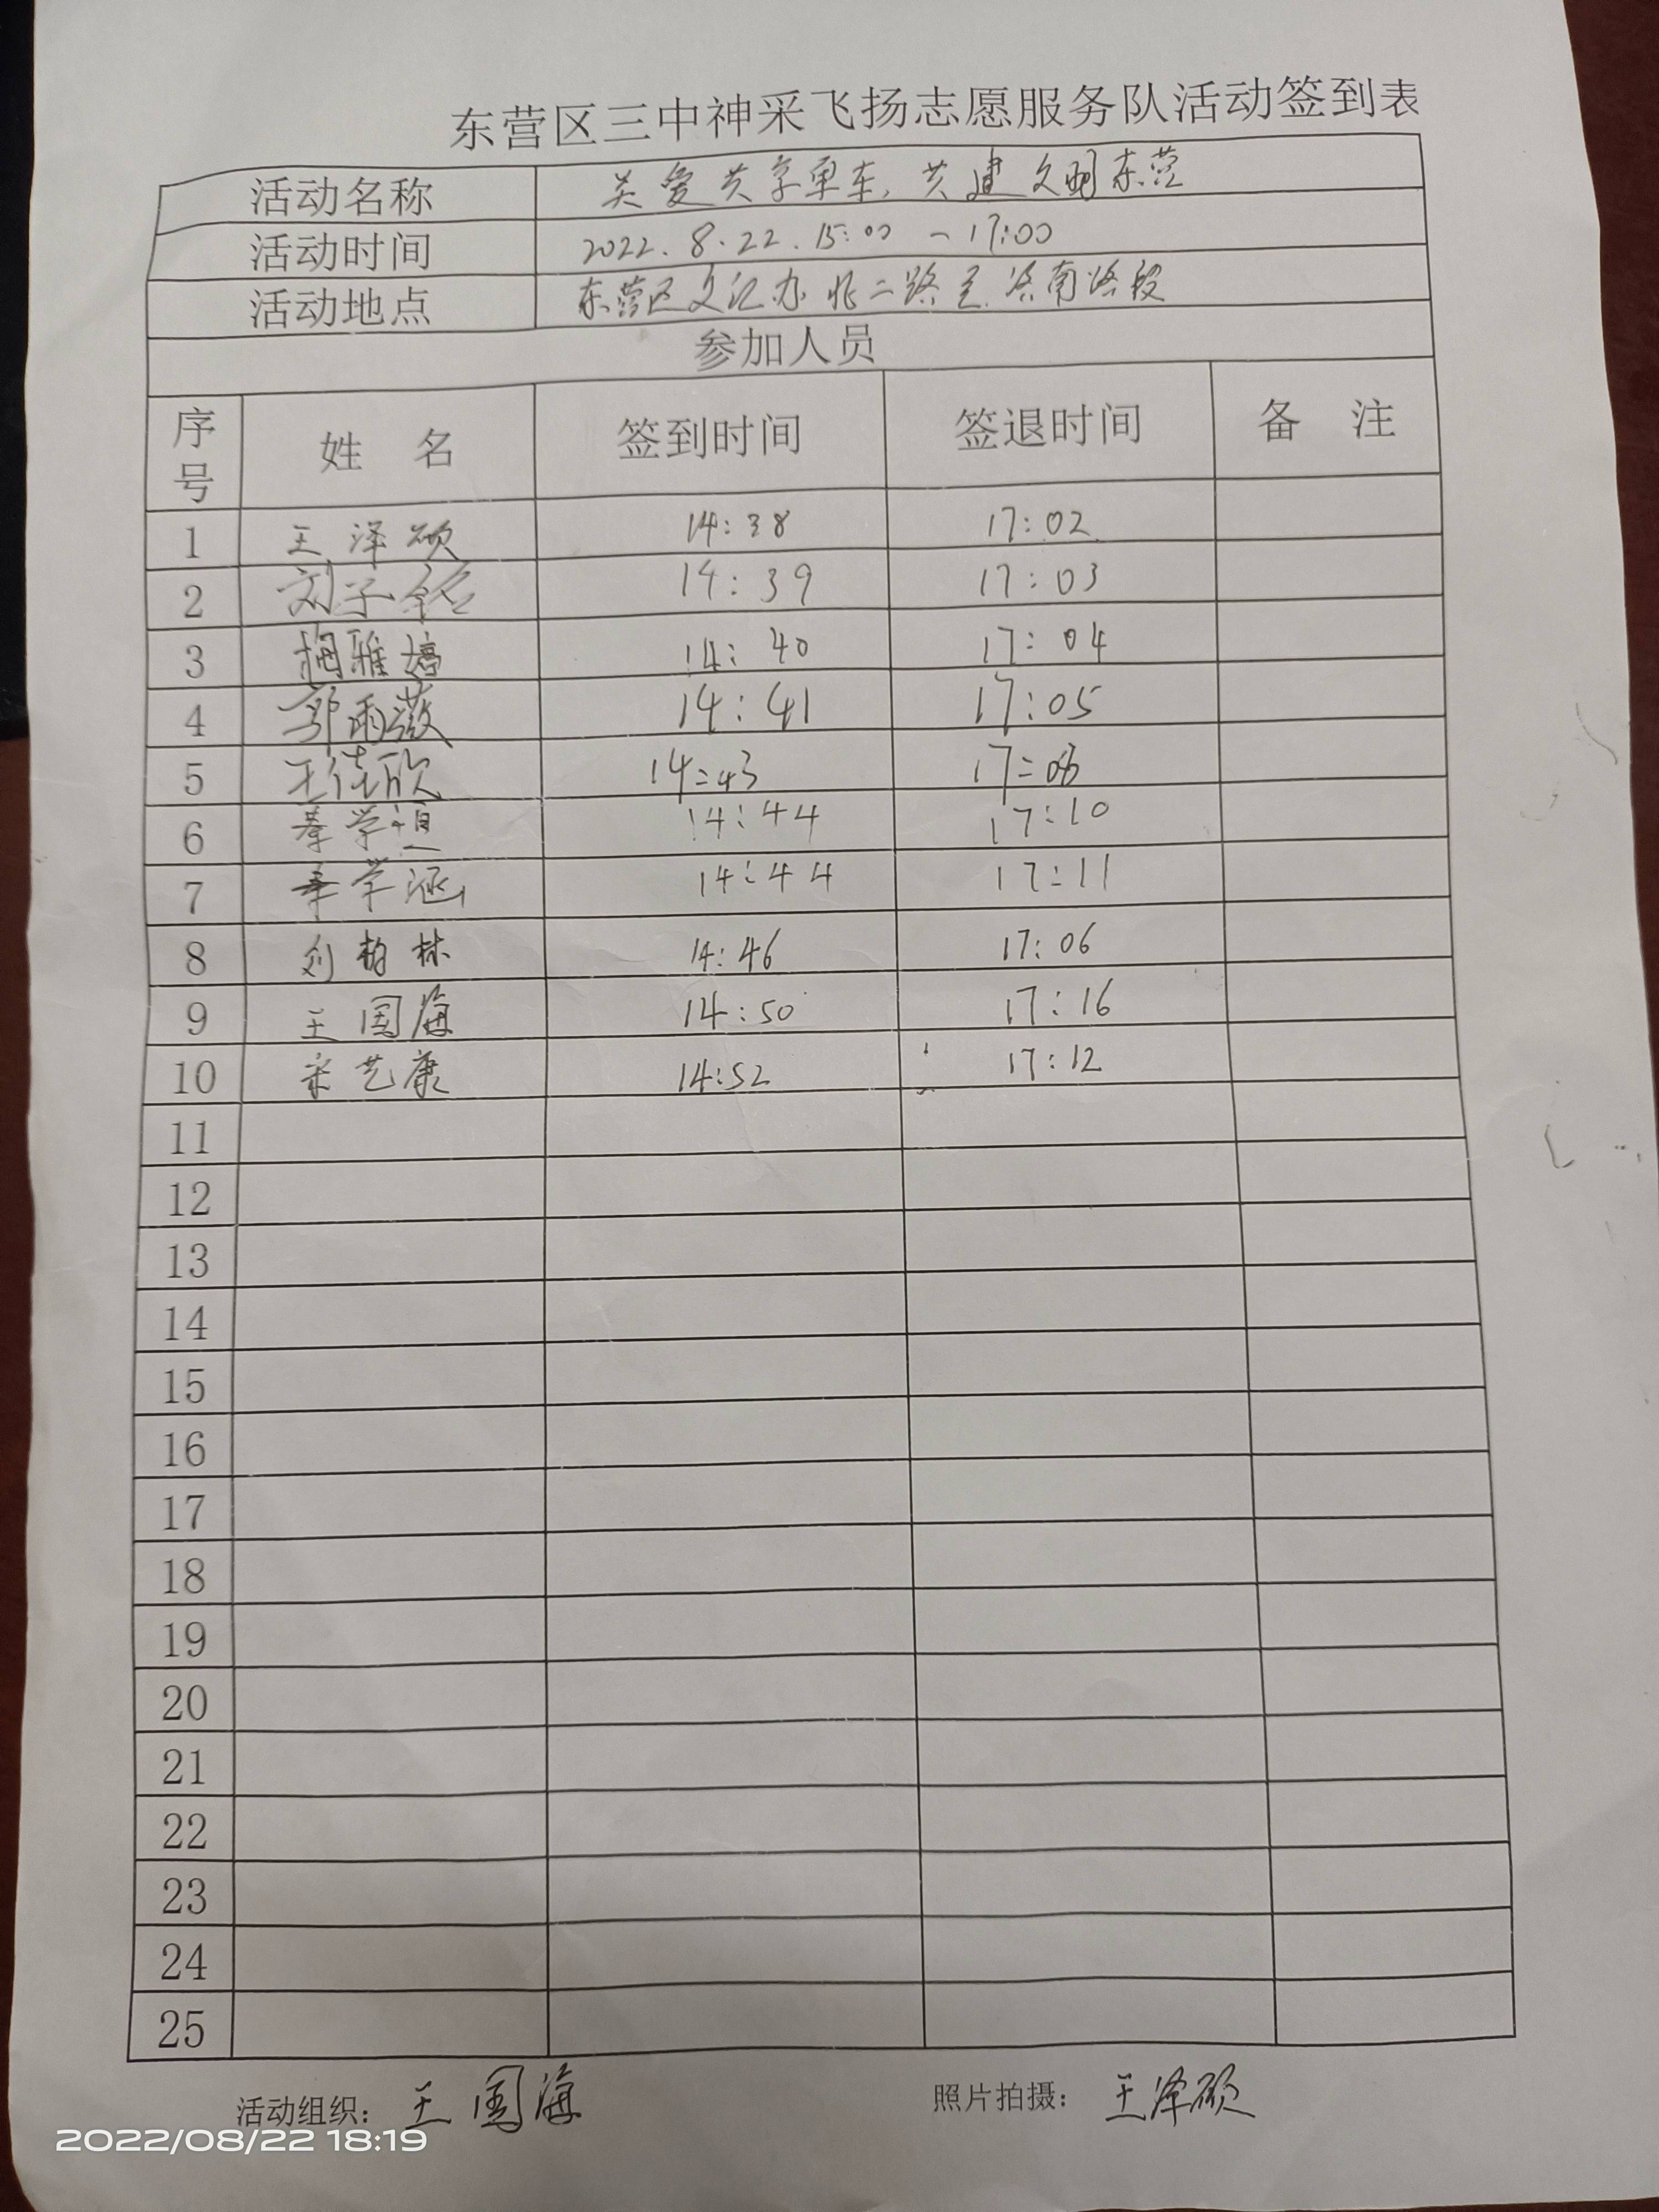 东营区三中神采飞扬志愿服务队活动签到表
活动名称 关爱共享单车,共建文明东营
活动时间 2022.8.22.15:00-17:00
活动地点 东营区文汇办北二路至济南路段
参加人员
序号 姓名 签到时间 签退时间 备注
1 王泽硕 14:38 17:02
2 刘子铭 14:39 17:03
3 梅雅婷 14:40 17:04
4 郭雨薇 14:41 17:05
5 王佳欣 14:43 17:06
6 学恒 14:44 17:10
7 学涵 14:44 17:11
8 刘柏林 14:46 17:06
9 王国海 14:50 17:16
10 宋艺康 14:52 17:12
11
12
13
14
15
16
17
18
19
20
21
22
23
24
25
活动组织: 王国海 照片拍摄: 王泽硕
2022/08/22 18:19